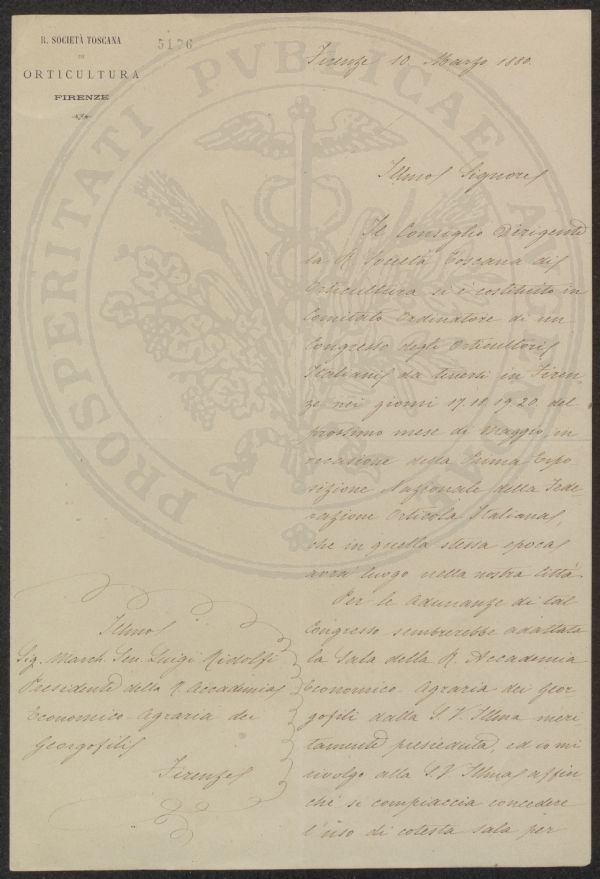 R. SOCIETÀ TOSCANA
DI
ORTICULTURA
FIRENZE
5176
Firenze 10 Marzo 1880.
Illmo Signore
Il Consiglio Dirigente
la R. Società Toscana di
Orticultura si è costituito in
Comitato Ordinatore di un
Congresso degli Orticultori
Italiani da tenersi in Firen-
ze nei giorni 17. 18. 19. 20. del
prossimo mese di Maggio, in
occasione della Prima Espo
sizione Nazionale della Fede
razione Orticola Italiana,
che in quella stessa epoca
avrà luogo nella nostra Città.
Per le Adunanze di tal
Congresso sembrerebbe adattata
la Sala della R. Accademia
Economico-Agraria dei Geor
gofili dalla S. V. Illma meri
tamente presieduta, ed io mi
rivolgo alla S. V. Illma affin
chè si compiaccia concedere
l'uso di cotesta sala per
Illmo
Sig. March. Sen. Luigi Ridolfi
Presidente della R. Accademia
Economico-Agraria dei
Georgofili
Firenze
PROSPERITATI PVBLICAE